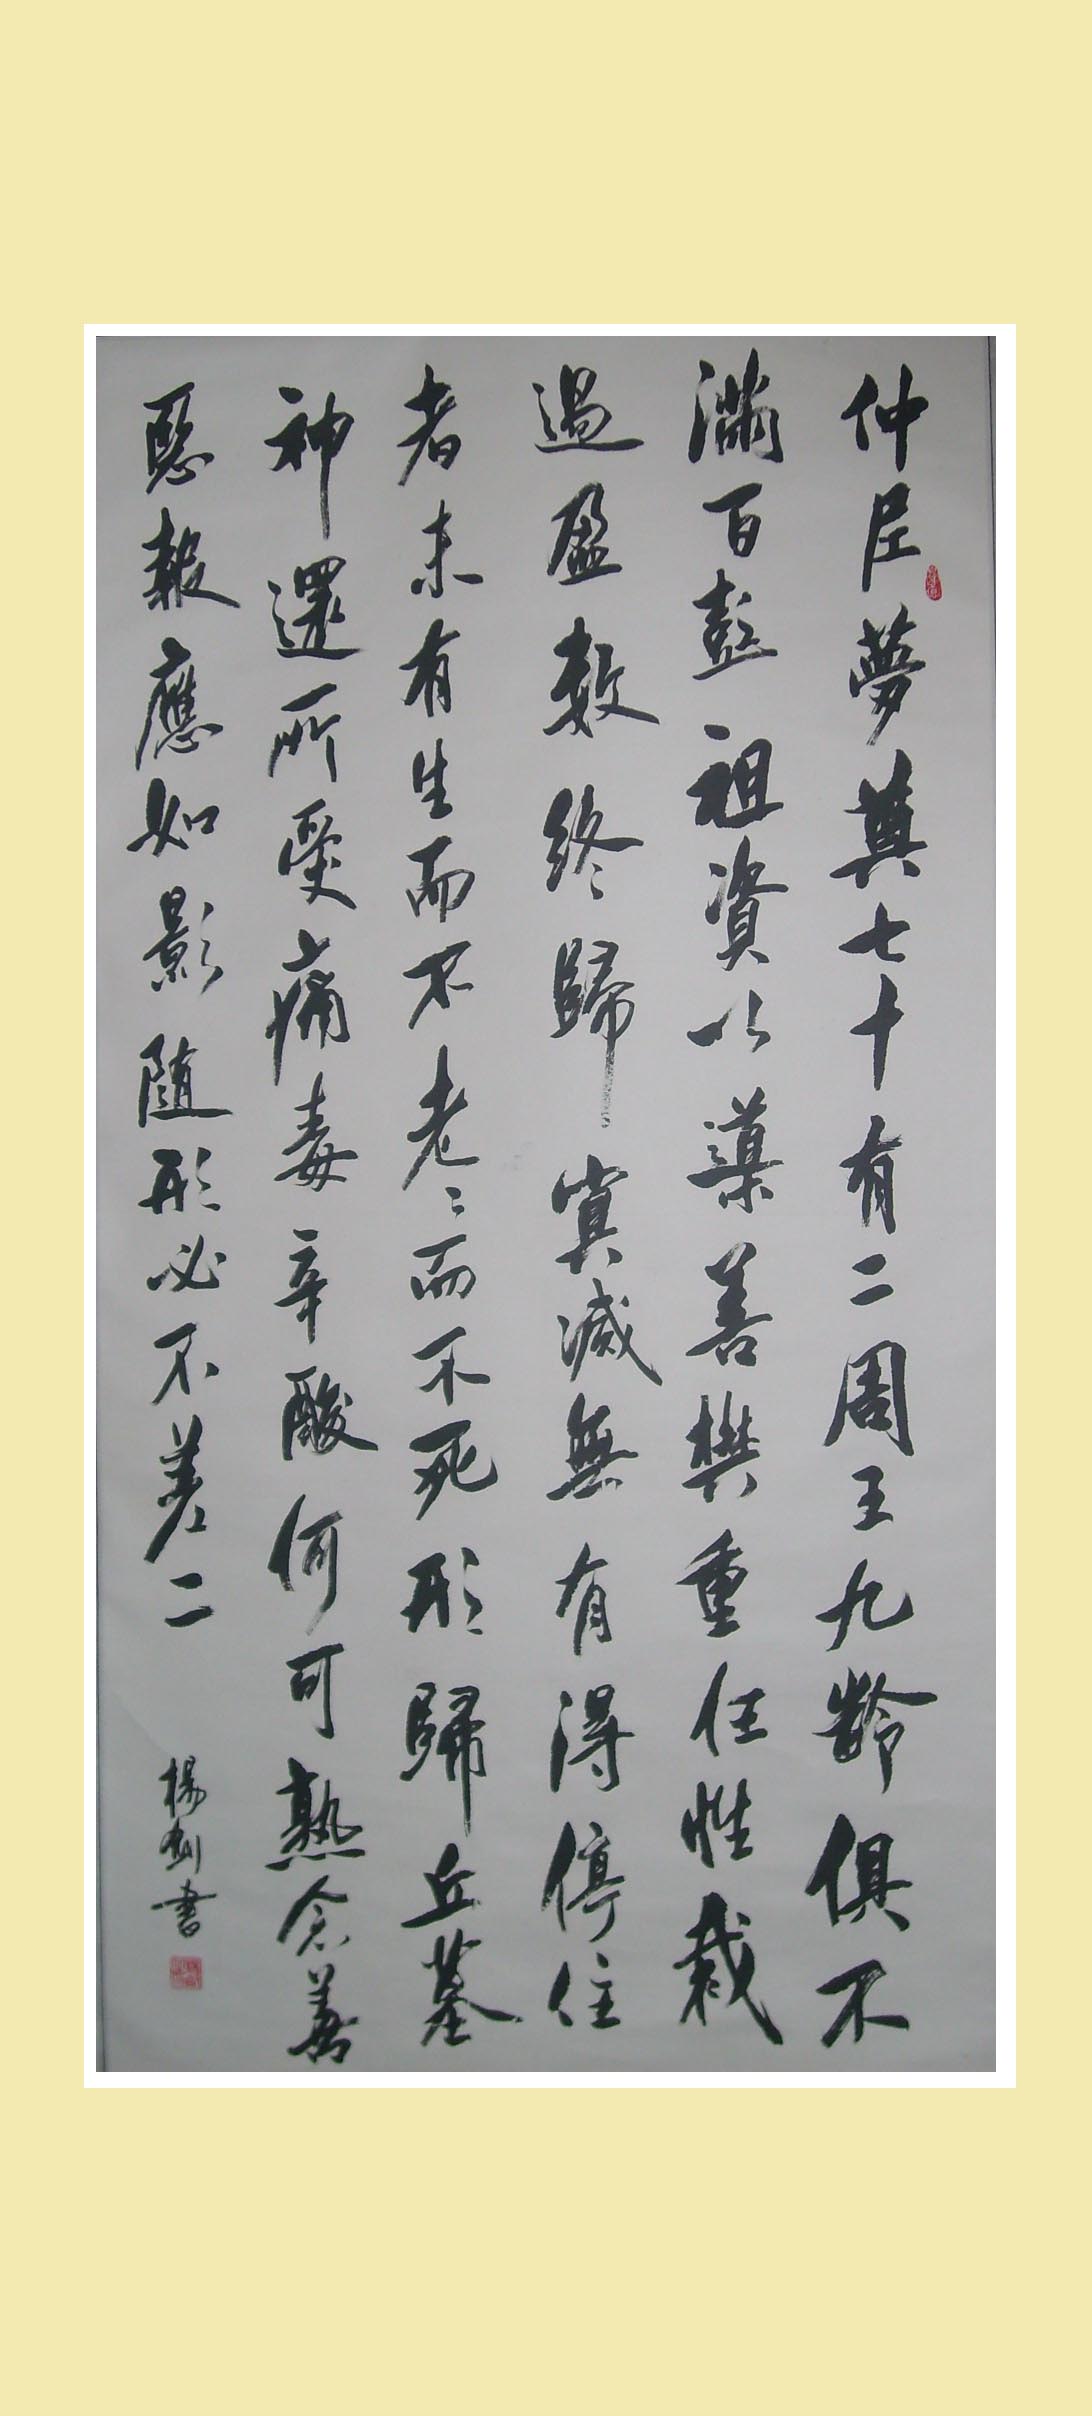 仲尼夢奠七十有二周王九齡俱不
滿百彭祖資以導善樊重任性裁
過盈數終歸冥滅無有得停住
者未有生而不老〻而不死形歸丘墓
神還所受痛毒辛酸何可熟念善
惡報應如影隨形必不差二
楊劍書